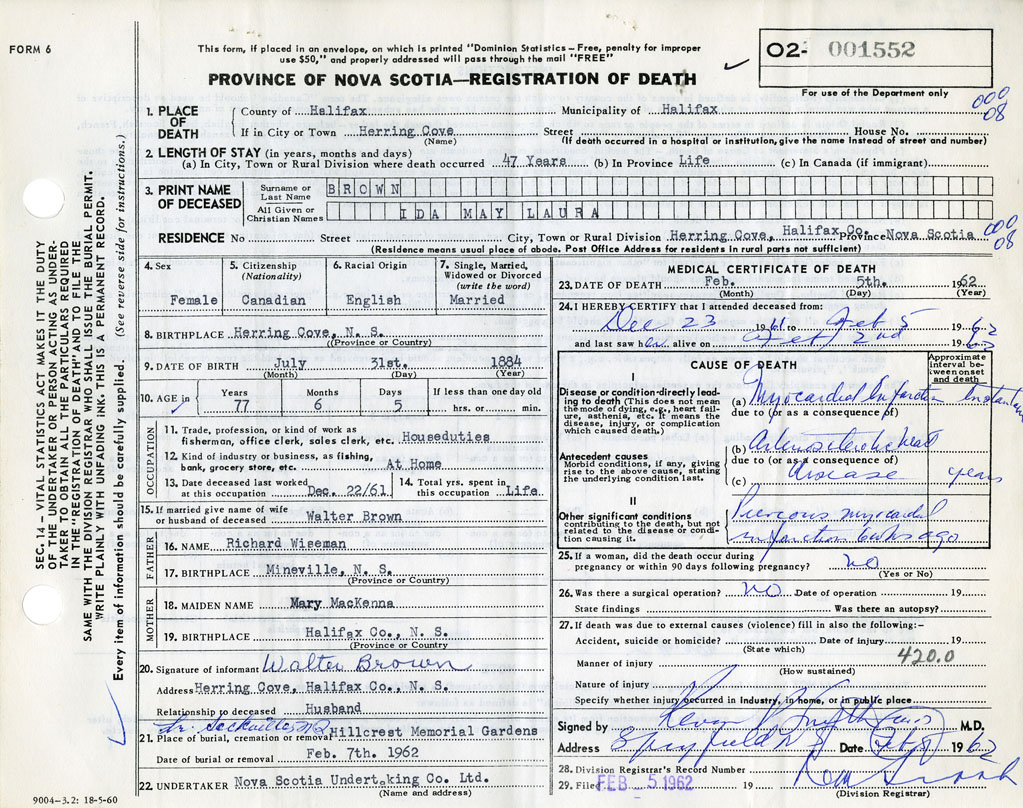 FORM 6
This form, if placed in an envelope, on which is printed "Dominion Statistics – Free, penalty for improper
use $50," and properly addressed will pass through the mail "FREE"
O2- 001552
For use of the Department only
PROVINCE OF NOVA SCOTIA—REGISTRATION OF DEATH
000
08
SEC. 14 – VITAL STATISTICS ACT MAKES IT THE DUTY
OF THE UNDERTAKER OR PERSON ACTING AS UNDER-
TAKER TO OBTAIN ALL THE PARTICULARS REQUIRED
IN THE "REGISTRATION OF DEATH" AND TO FILE THE
SAME WITH THE DIVISION REGISTRAR WHO SHALL ISSUE THE BURIAL PERMIT.
WRITE PLAINLY WITH UNFADING INK. THIS IS A PERMANENT RECORD.
Every item of information should be carefully supplied. (See reverse side for instructions.)
1. PLACE OF DEATH County of Halifax Municipality of Halifax
If in City or Town Herring Cove Street House No.
(Name) (If death occurred in a hospital or institution, give the name instead of street and number)
2. LENGTH OF STAY (in years, months and days)
(a) In City, Town or Rural Division where death occurred 47 Years (b) In Province Life (c) In Canada (if immigrant)
3. PRINT NAME OF DECEASED Surname or Last Name BROWN
All Given or Christian Names IDA MAY LAURA
RESIDENCE No Street City, Town or Rural Division Herring Cove, Halifax Co. Province Nova Scotia 000 08
(Residence means usual place of abode. Post Office Address for residents in rural parts not sufficient)
4. Sex Female
5. Citizenship (Nationality) Canadian
6. Racial Origin English
7. Single, Married, Widowed or Divorced (write the word) Married
8. BIRTHPLACE Herring Cove, N. S.
(Province or Country)
9. DATE OF BIRTH July 31st. 1884
(Month) (Day) (Year)
10. AGE in Years 77 Months 6 Days 5 If less than one day old hrs. or min.
OCCUPATION
11. Trade, profession, or kind of work as
fisherman, office clerk, sales clerk, etc. Houseduties
12. Kind of industry or business, as fishing,
bank, grocery store, etc. At Home
13. Date deceased last worked at this occupation Dec. 22/61
14. Total yrs. spent in this occupation Life
15. If married give name of wife
or husband of deceased Walter Brown
FATHER
16. NAME Richard Wiseman
17. BIRTHPLACE Mineville, N. S.
(Province or Country)
MOTHER
18. MAIDEN NAME Mary MacKenna
19. BIRTHPLACE Halifax Co., N. S.
(Province or Country
20. Signature of informant Walter Brown
Address Herring Cove, Halifax Co., N. S.
Relationship to deceased Husband
Lr. Sackville NS
21. Place of burial, cremation or removal Hillcrest Memorial Gardens
Date of burial or removal Feb. 7th. 1962
22. UNDERTAKER Nova Scotia Undertaking Co. Ltd.
(Name and address)
9004–3.2: 18-5-60
MEDICAL CERTIFICATE OF DEATH
23. DATE OF DEATH Feb. 5th. 1962
(Month) (Day) (Year)
24. I HEREBY CERTIFY that I attended deceased from:
Dec 23 1961 to Feb 5 1962
and last saw her alive on Feb 2nd 1962
CAUSE OF DEATH
Approximate interval between onset and death
I
Disease or condition directly lead-
ing to death (This does not mean
the mode of dying, e.g., heart fail-
ure, asthenia, etc. It means the
disease, injury, or complication
which caused death.)
(a) Myocardial Infarction
due to (or as a consequence of)
Antecedent causes
Morbid conditions, if any, giving
rise to the above cause, stating
the underlying condition last.
(b) heart
due to (or as a consequence of)
(c) disease years
II
Other significant conditions
contributing to the death, but not
related to the disease or condi-
tion causing it.
Previous myocardial
infarction 6 wks ago
25. If a woman, did the death occur during
pregnancy or within 90 days following pregnancy? no
(Yes or No)
26. Was there a surgical operation? no Date of operation 19
State findings Was there an autopsy?
27. If death was due to external causes (violence) fill in also the following:–
Accident, suicide or homicide? Date of injury 19
(State which)
420.0
Manner of injury
(How sustained)
Nature of injury
Specify whether injury occurred in industry, in home, or in public place
Signed by M.D.
Address Spryfield NS Date Feb 1962
28. Division Registrar's Record Number
29. Filed FEB 5 1962 19
(Division Registrar)